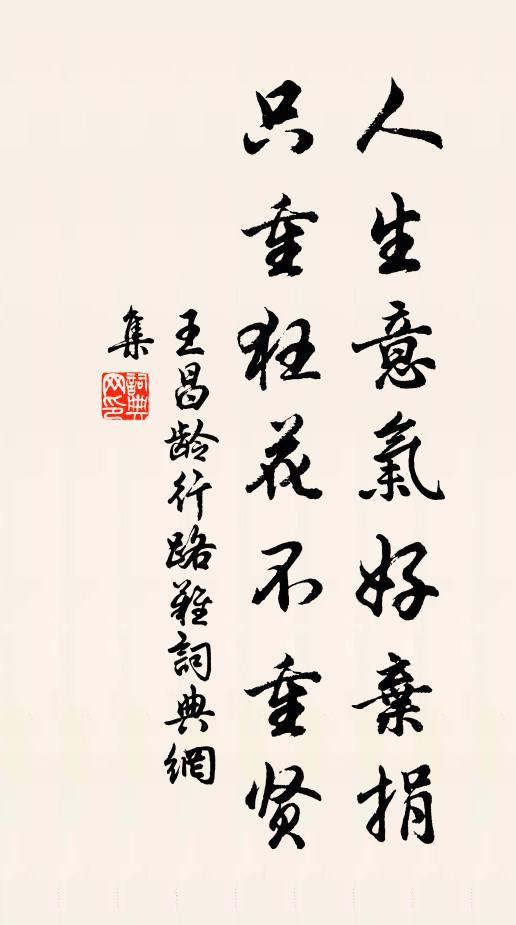 人生意氣好棄捐
只重狂花不重贤
王昌龄行路難詞典網
集
詞典
网印